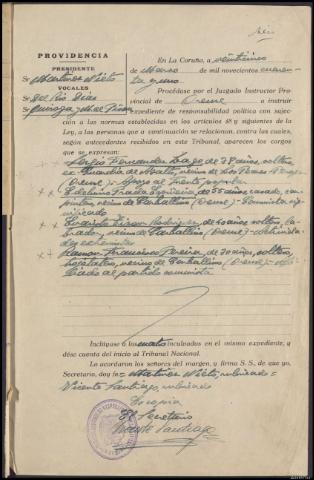 PROVIDENCIA
PRESIDENTE
Sr. Martinez Nieto
VOCALES
Sr. Del Río Díaz
Sr.
En La Coruña, a veintiuno
de Marzo de mil novecientos cuaren-
ta y uno.
Procédase por el Juzgado Instructor Pro-
vincial de Orense a instruir
expediente de responsabilidad política con sujec-
ción a las normas establecidas en los artículos 48 y siguientes de la
Ley, a las personas que a continuación se relacionan, contra las cuales,
según antecedentes recibidos en este Tribunal, aparecen los cargos
que se expresan:
Sergio Fernandez Lago de 28 años, soltero,
ex Guardia de Asalto, vecino de
(Orense) - Apoyo al frente popular
Edelmiro Prada de 55 años, casado, car-
pintero, vecino de Carballino (Orense) - Comunista sig-
nificado
Rodriguez, de 40 años, soltero, la-
brador, vecino de Carballino (Orense) -
de extremistas
Ramon Francisco Pereira, de 30 años, soltero,
zapatero, vecino de Carballino (Orense) - afi-
liado al partido comunista
Inclúyase a los cuatro inculpados en el mismo expediente, y
dése cuenta del inicio al Tribunal Nacional.
Lo acordaron los señores del margen, y firma S. S., de que yo,
Secretario, doy fe = Martinez Nieto, rubricado =
Vicente Santiago, rubricado
Es copia
El Secretario
Vicente Santiago